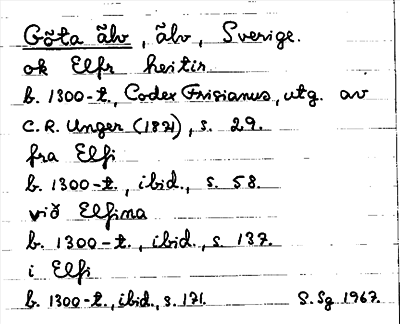 Göta älv, älv, Sverige.
ok Elfr heitir
b. 1300-t., Codex Frisianus, utg. av
C. R. Unger (1871), s. 29.
fra Elfi
b. 1300-t., ibid., s. 58.
við Elfina
b. 1300-t., ibid., s. 137.
i Elfi
b. 1300-t., ibid., s. 171. S. Sg 1967.